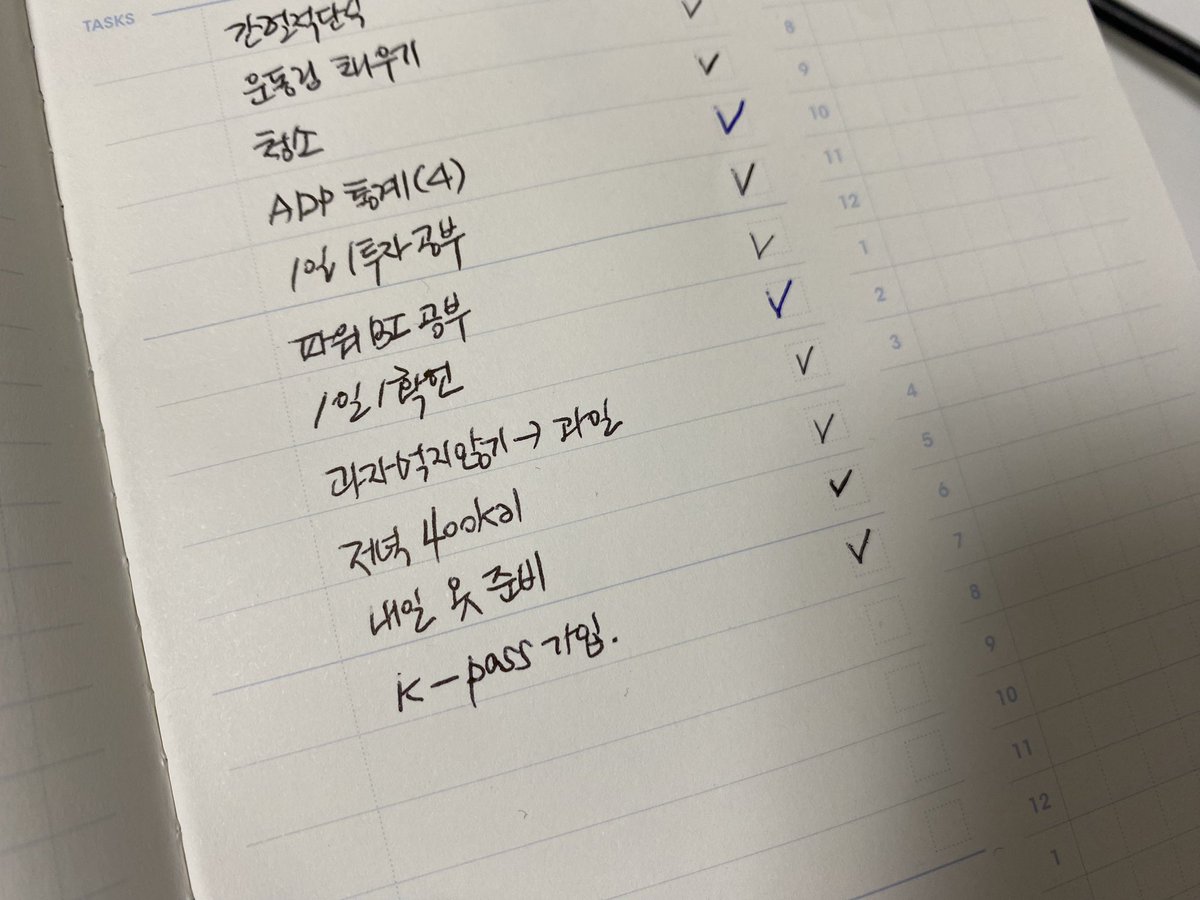 TASKS
간헐적단식
운동링 채우기
청소
ADP 통계(4)
1일 1투자공부
파워BI 공부
1일 1학언
과자먹지않기→과일
저녁 400kal
내일 옷 준비
K-pass 가입.
8
9
10
11
12
1
2
3
4
5
6
7
8
9
10
11
12
1